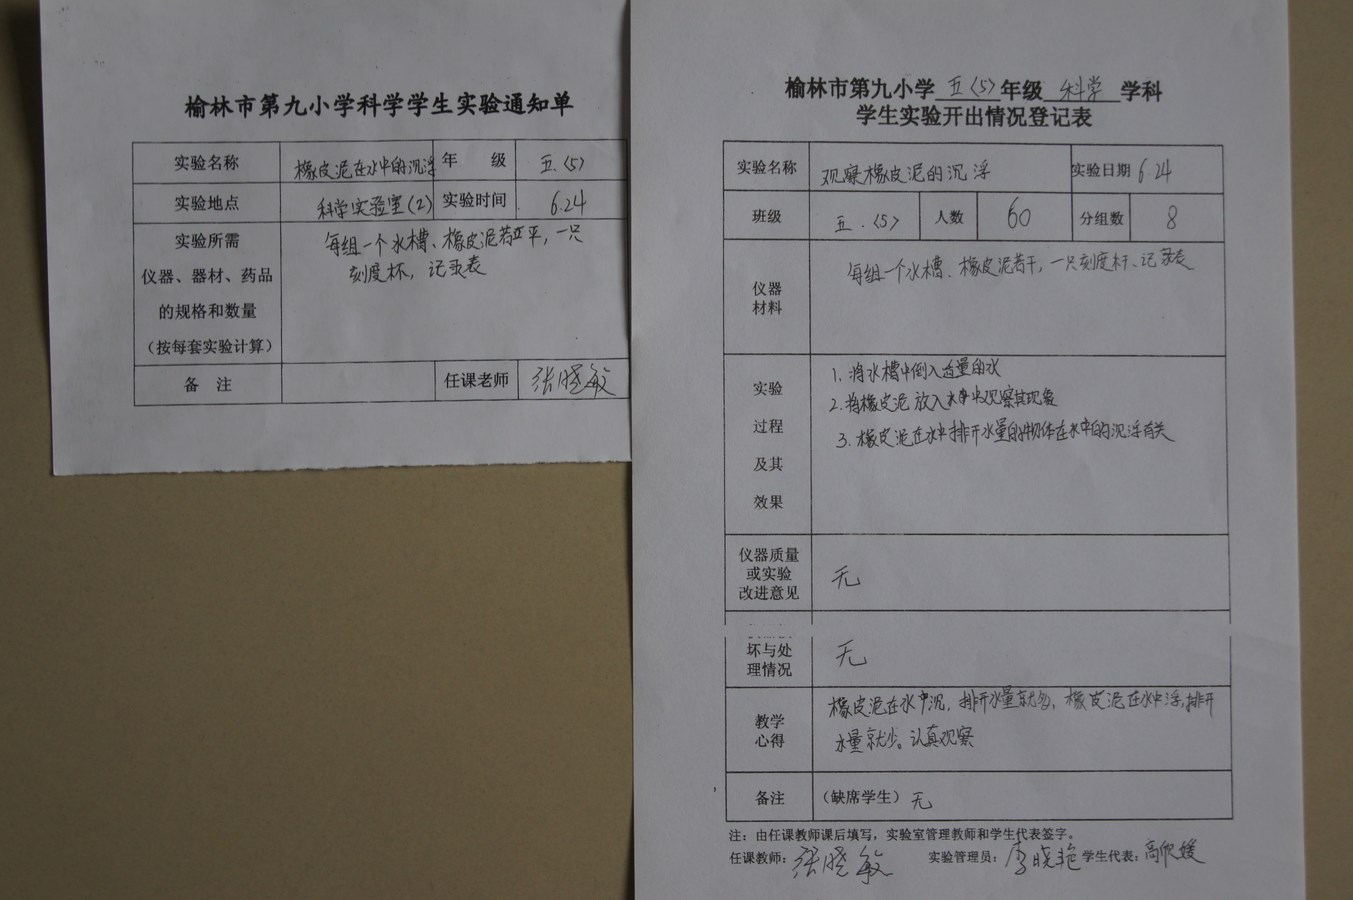 榆林市第九小学科学学生实验通知单
实验名称 橡皮泥在水中的沉浮 年 级 五.〈5〉
实验地点 科学实验室(2) 实验时间 6.24
实验所需
仪器、器材、药品
的规格和数量
（按每套实验计算）
每组一个水槽、橡皮泥若干，一只
刻度杯，记录表
备 注 任课老师 张晓敏
榆林市第九小学 五〈5〉 年级 科学 学科
学生实验开出情况登记表
实验名称 观察橡皮泥的沉浮 实验日期 6.24
班级 五.〈5〉 人数 60 分组数 8
仪器
材料
每组一个水槽、橡皮泥若干，一只刻度杯、记录表
实验
过程
及其
效果
1. 将水槽中倒入适量的水
2. 将橡皮泥放入水中观察其现象
3. 橡皮泥在水中排开水量的物体在水中的沉浮有关
仪器质量
或实验
改进意见
无
坏与处
理情况
无
教学
心得
橡皮泥在水中沉，排开水量就多，橡皮泥在水中浮，排开
水量就少。认真观察
备注 （缺席学生）无
注：由任课教师课后填写，实验室管理教师和学生代表签字。
任课教师：张晓敏 实验管理员：李晓艳 学生代表：高欣媛